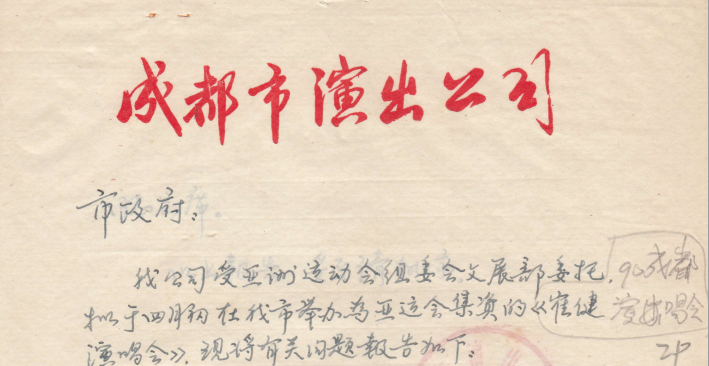 成都市演出公司
市政府：
我公司受亚洲运动会组委会文展部委托，
拟于四月份在我市举办为亚运会集资的《崔健
演唱会》，现将有关问题报告如下：
90成都
演唱会